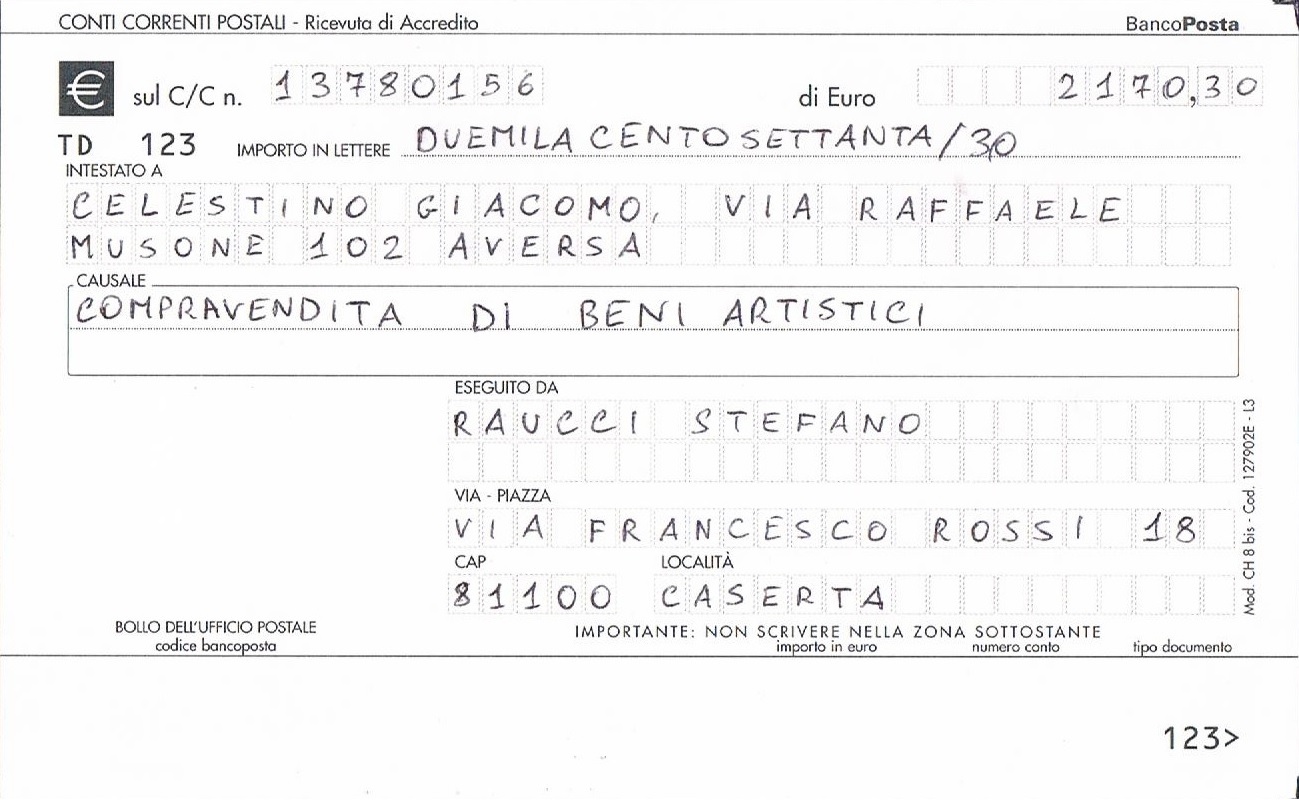 CONTI CORRENTI POSTALI - Ricevuta di Accredito BancoPosta
€ sul C/C n. 13780156 di Euro 2170,30
TD 123 IMPORTO IN LETTERE DUEMILA CENTO SETTANTA/30
INTESTATO A
CELESTINO GIACOMO, VIA RAFFAELE
MUSONE 102 AVERSA
CAUSALE
COMPRAVENDITA DI BENI ARTISTICI
ESEGUITO DA
RAUCCI STEFANO
VIA - PIAZZA
VIA FRANCESCO ROSSI 18
CAP LOCALITÀ
81100 CASERTA
Mod. CH 8 bis - Cod. 127902E - L3
BOLLO DELL'UFFICIO POSTALE IMPORTANTE: NON SCRIVERE NELLA ZONA SOTTOSTANTE
codice bancoposta importo in euro numero conto tipo documento
123>